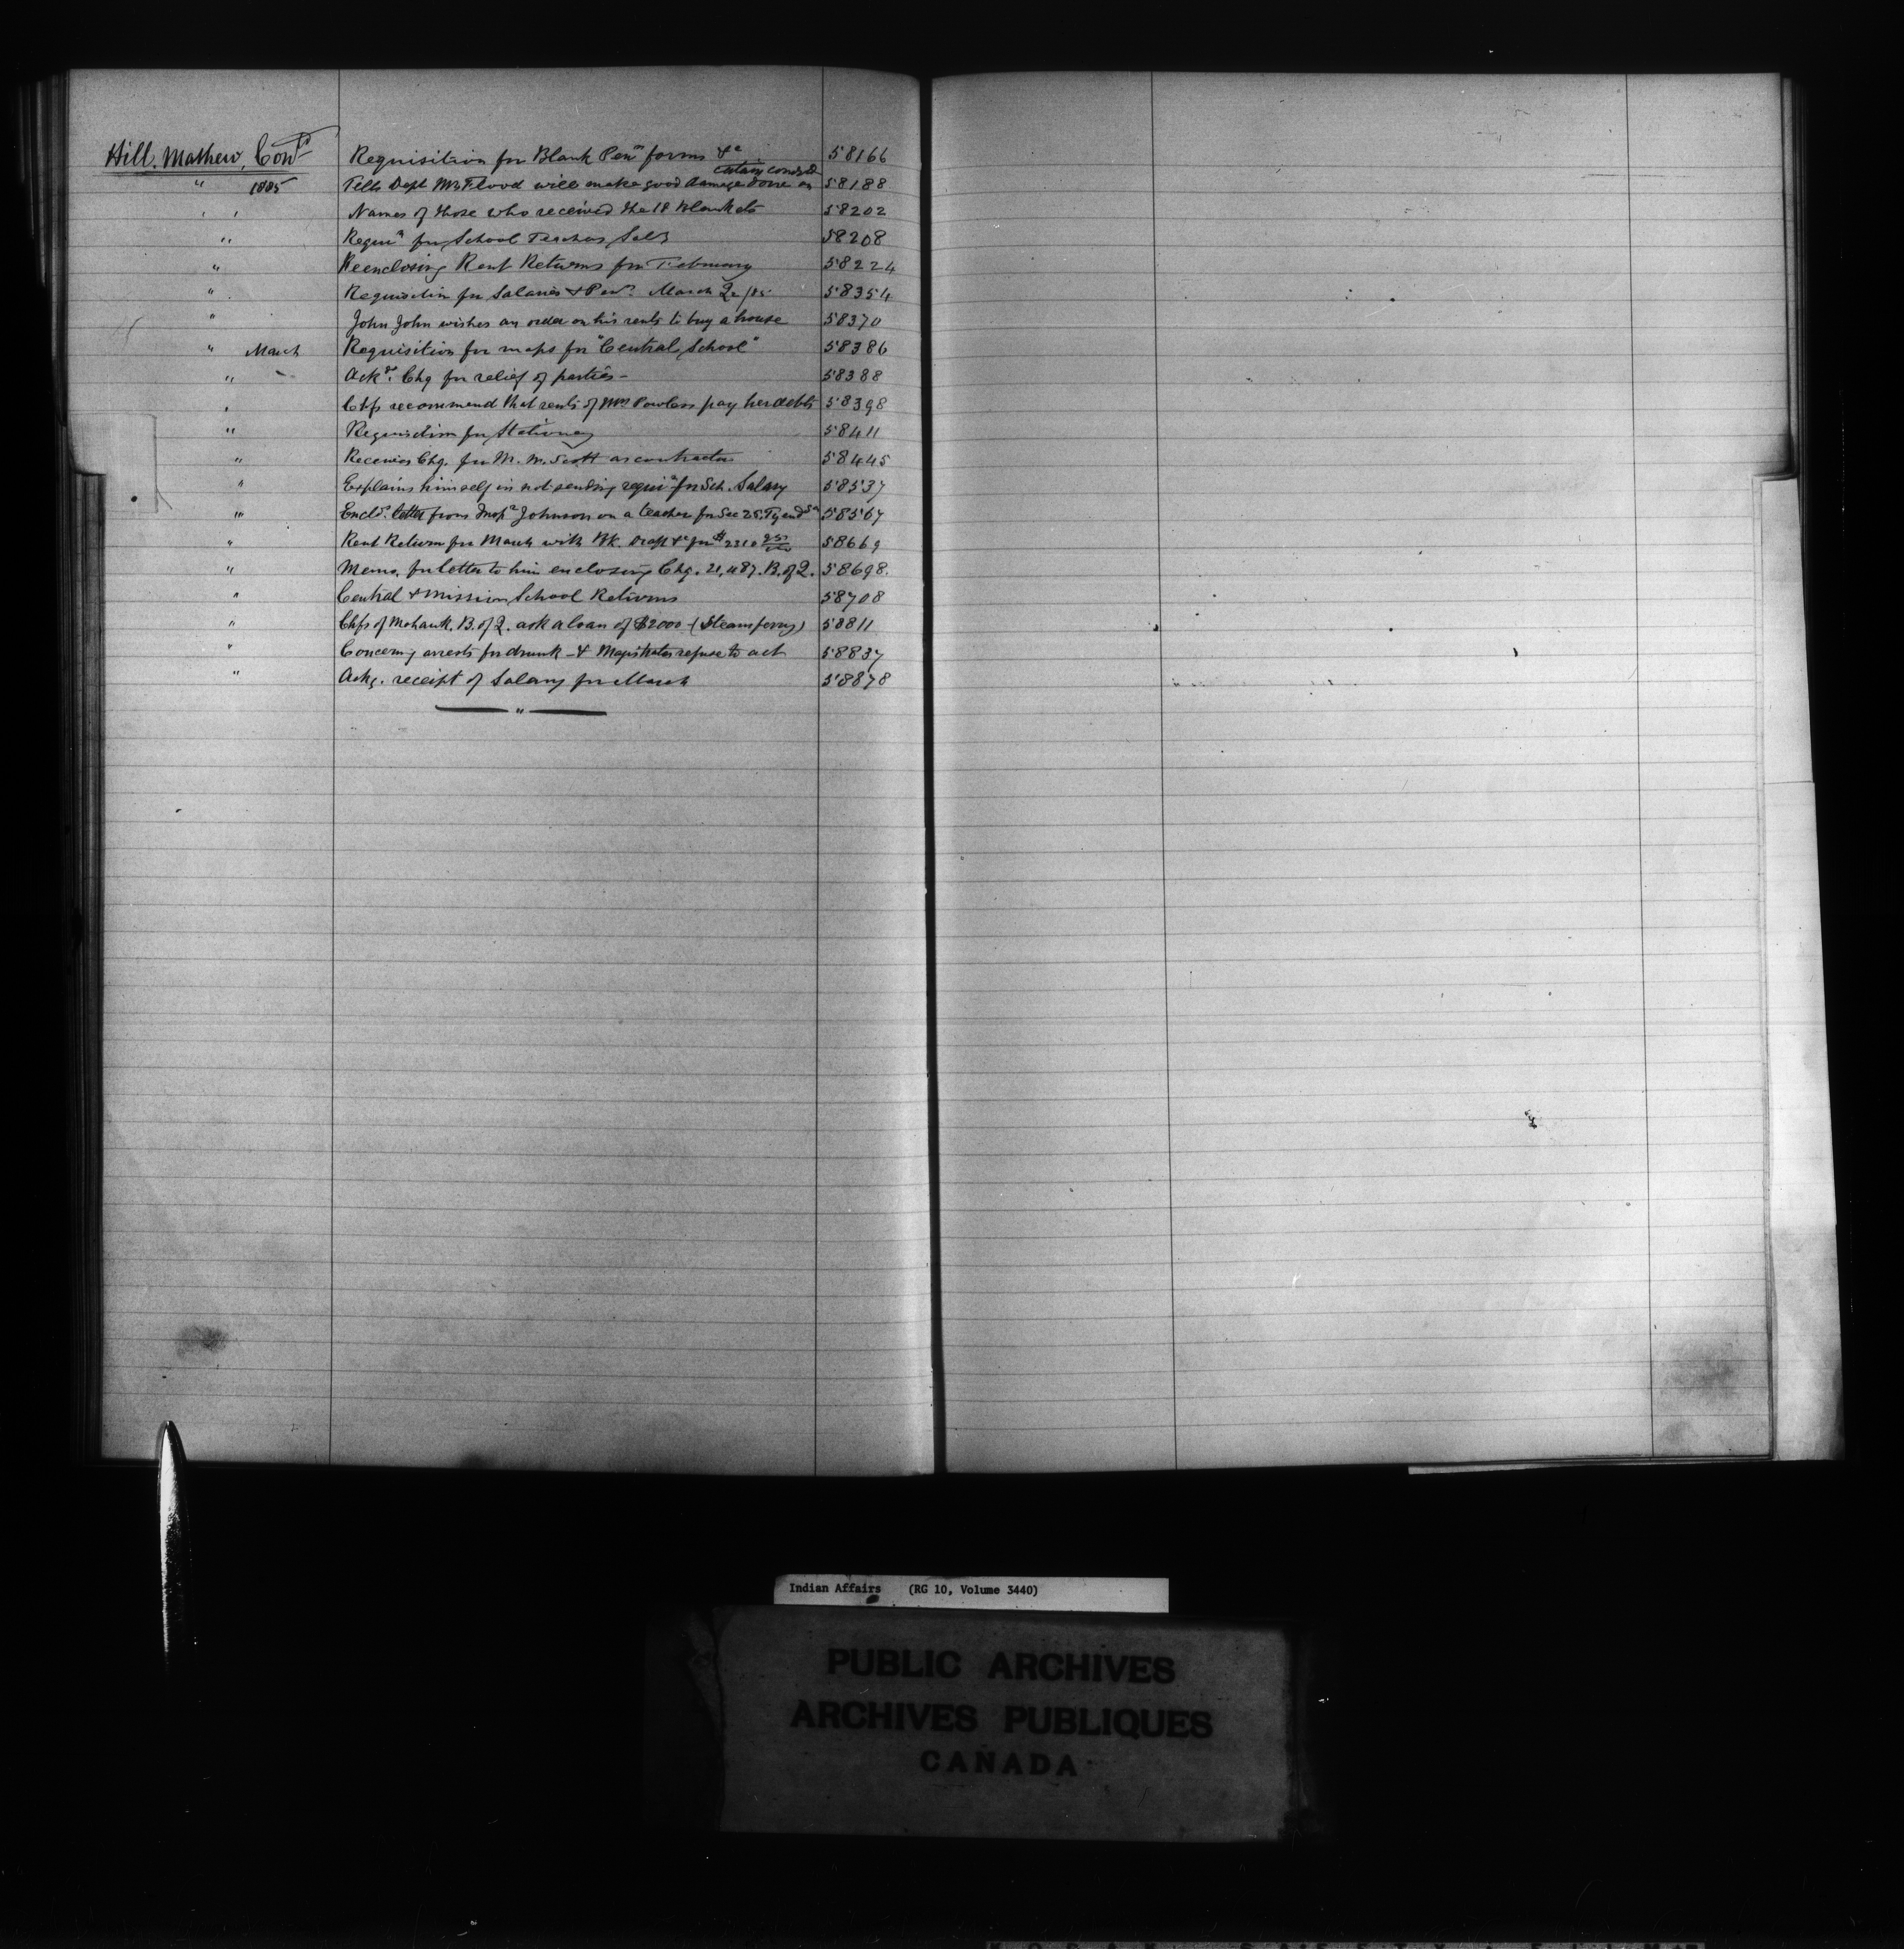 Hill. Mathew, Cont^d Requisition for Blank Pen^n forms &c 58166
" 1885 Tells Dept Mr Flood will make good damage done on certain 58188
" " Names of those who received the 18 Blankets 58202
" Requi^n for School Teachers Sal^y 58208
" Reenclosing Rent Returns for February 58224
" Requisition for Salaries & Pen^n March 58354
" John John wishes an order on his rents to buy a house 58370
" March Requisition for maps for "Central School" 58386
" Ack^gs Chq for relief of parties - 58388
" Chfs recommend that rents of Mrs Powless pay her debts 58398
" Requisition for Stationery 58411
" Receives Chq. for M. W. Scott as contractor 58445
" Explains himself in not sending requi^n for Sch. Salary 58537
" Encl^s letter from Insp^r Johnson on a teacher for Sec 25, Tyend^ga 58567
" Rent Return for March with Bk. Draft &c for $2310 58669
" Memo. for letter to him enclosing Chq. 21,487. B. of Q. 58698.
" Central & Mission School Returns 58708
" Chfs of Mohawk. B. of Q. ask a loan of $2000 - (Steamferry) 58811
" Concerng arrests for drunk - & Magistrates refuse to act 58837
" Ackg. receipt of Salary for March 58878
"
Indian Affairs (RG 10, Volume 3440)
PUBLIC ARCHIVES
ARCHIVES PUBLIQUES
CANADA